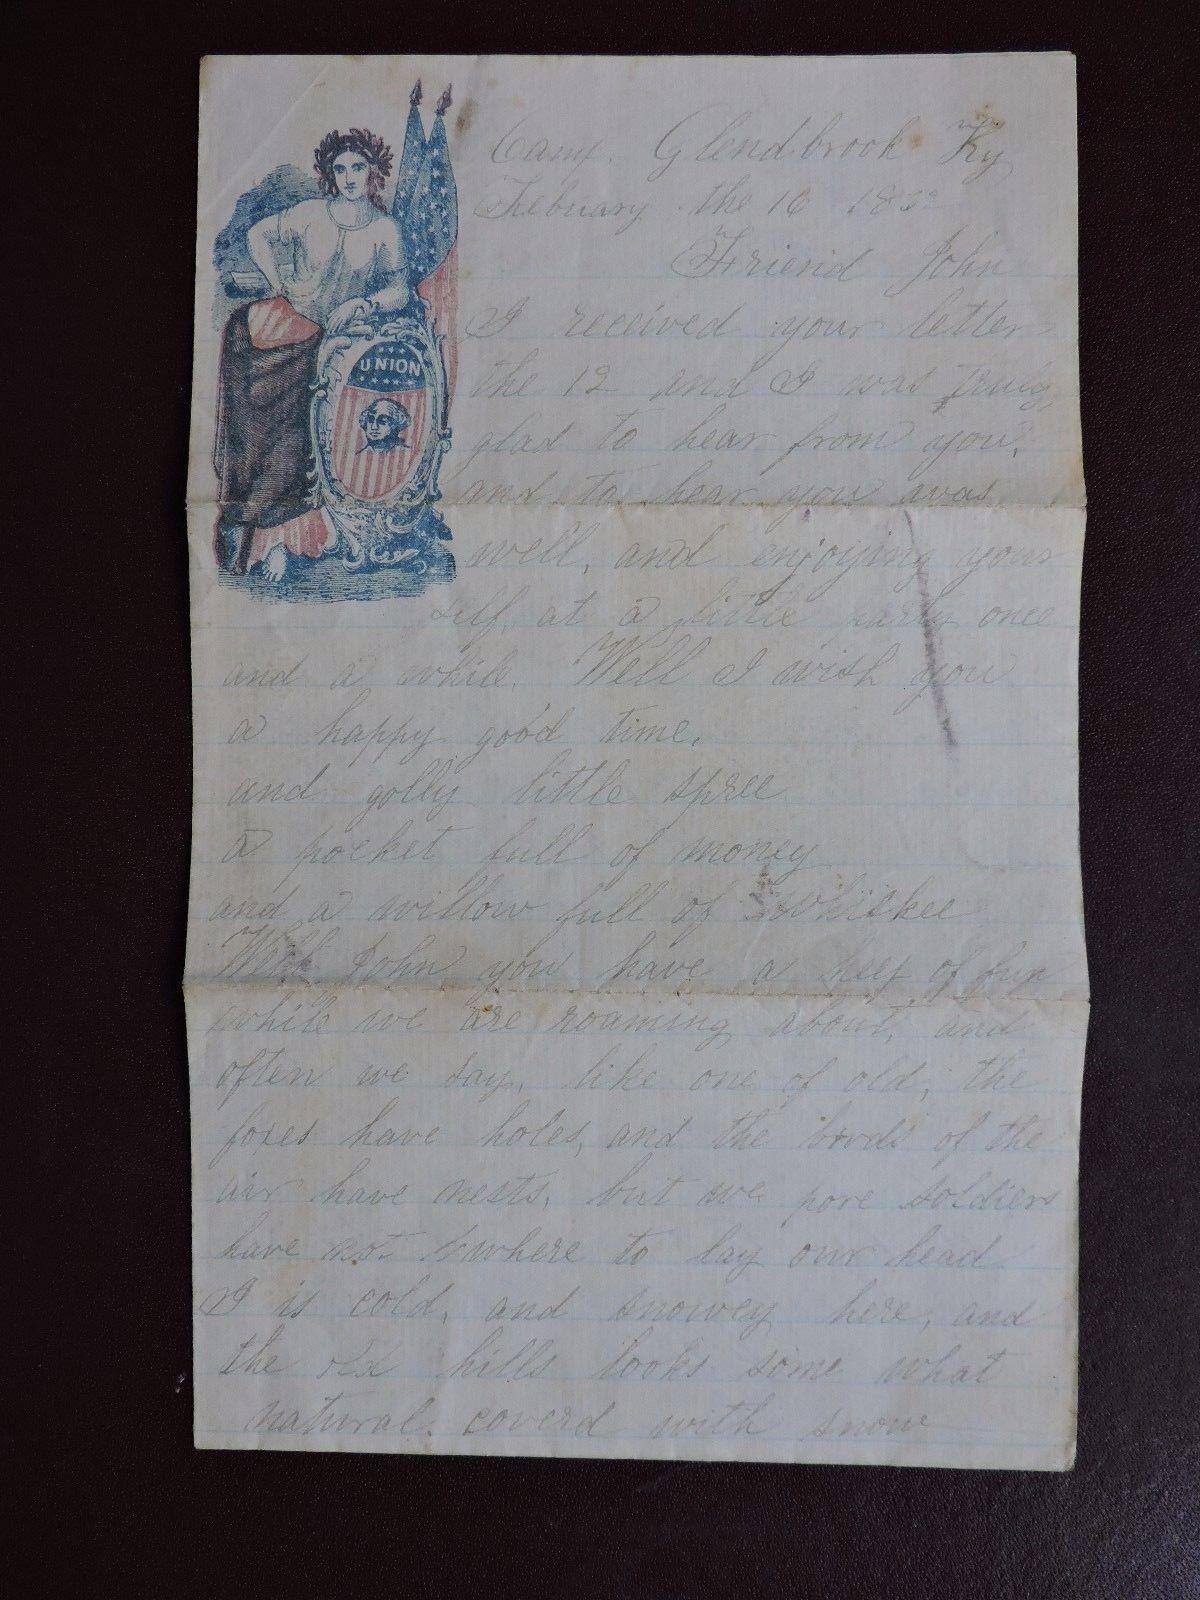 UNION
Camp. Glendbrook Ky
Febuary the 16 1862
Friend John
I received your letter
the 12 and I was truly
glad to hear from you,
and to hear you was
well, and enjoying your
self, at a little party once
and a while. Well I wish you
a happy good time,
and golly little spree
a pocket full of money
and a willow full of whiskee
Well John you have a heep of fun
while we are roaming about, and
often we say, like one of old, the
foxes have holes, and the birds of the
air have nests, but we pore soldiers
have not where to lay our head
I is cold, and snowey here, and
the old hills looks some what
natural coverd with snow